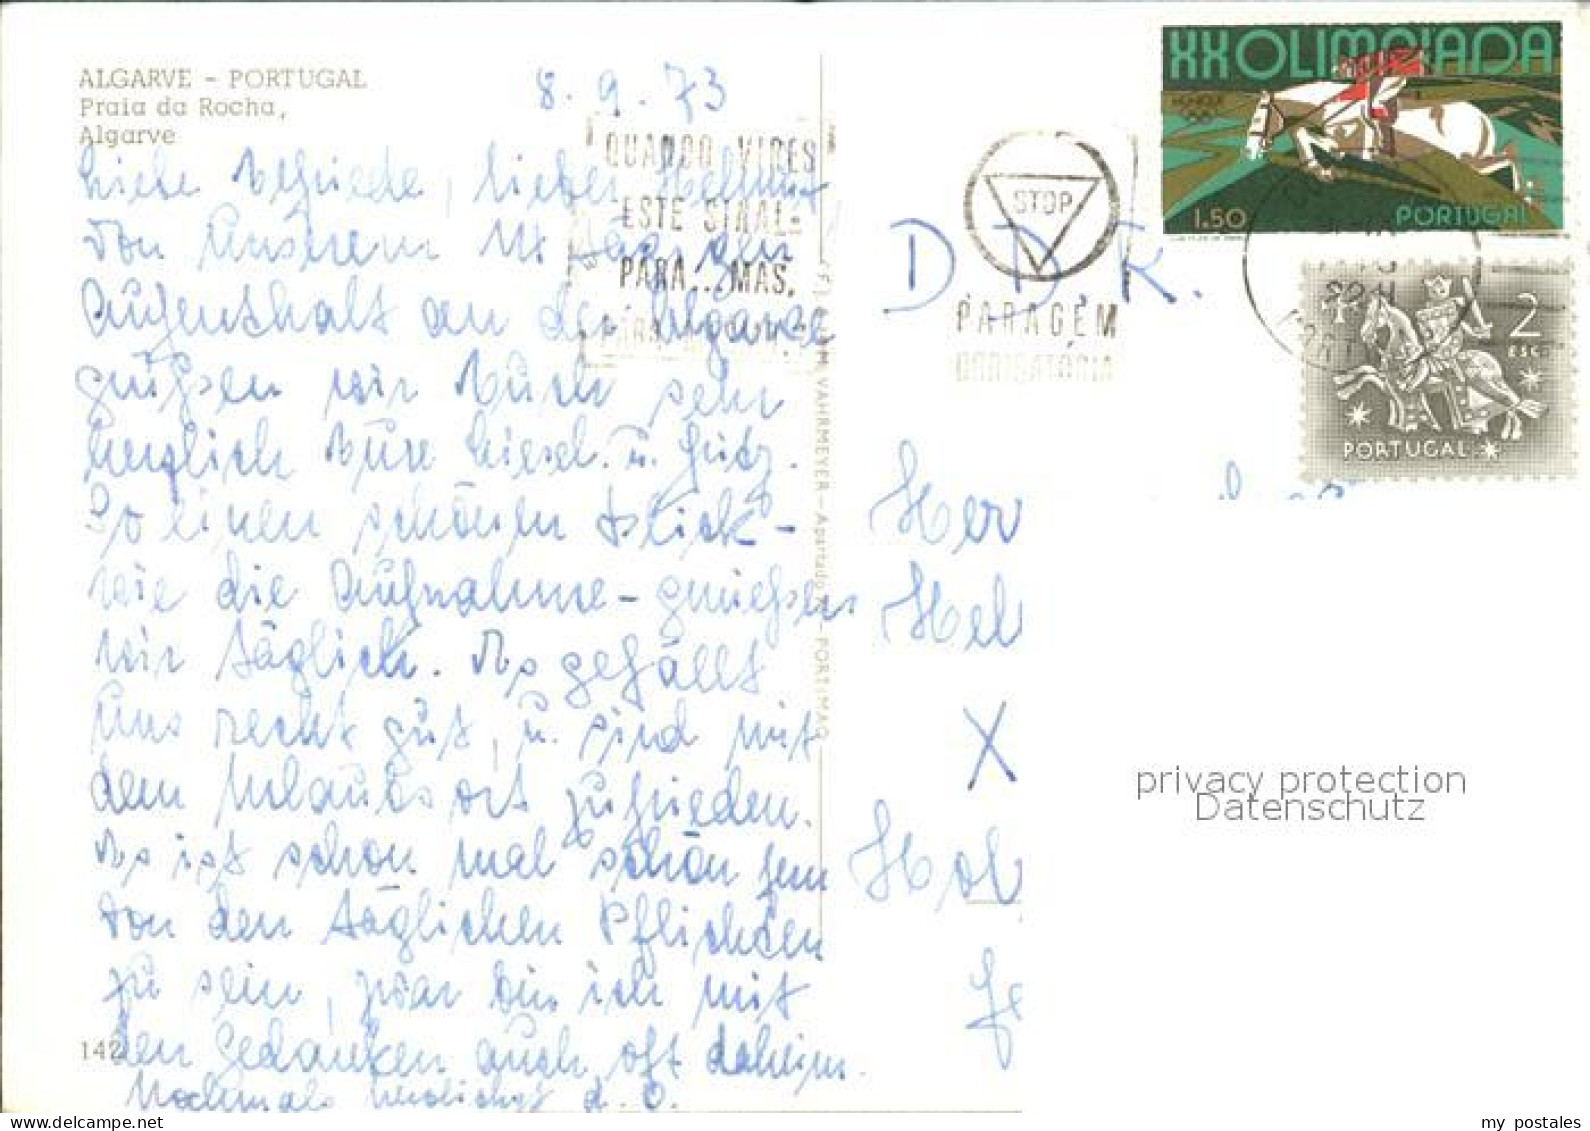 ALGARVE - PORTUGAL
Praia da Rocha,
Algarve
8.9.73
Liebe Elfriede, lieber Helmut,
von unserem Ur
Aufenthalt an der Algarve
grüßen wir Euch sehr
herzlich Eure Liesel. u. Fritz.
So einen schönen Blick -
wie die Aufnahme - genießen
wir täglich. Es gefällt
uns recht gut, u. sind mit
dem Urlaubsort zufrieden.
Es ist schon mal schön fern
von den täglichen Pflichten
zu sein, zwar bin ich mit
den Gedanken auch oft daheim.
Nochmals herzlichst d. O.
142
QUANDO VIRES
ESTE SINAL-
PARA...MAS,
PARA
STOP
PARAGEM
OBRIGATÓRIA
XX OLIMPIADA
MUNIQUE
1.50
PORTUGAL
2
ESC.
PORTUGAL
VAHRMEYER - Apartado - PORTIMAO
D.D.R.
Her
Hel
X
Hol
privacy protection
Datenschutz
my postales